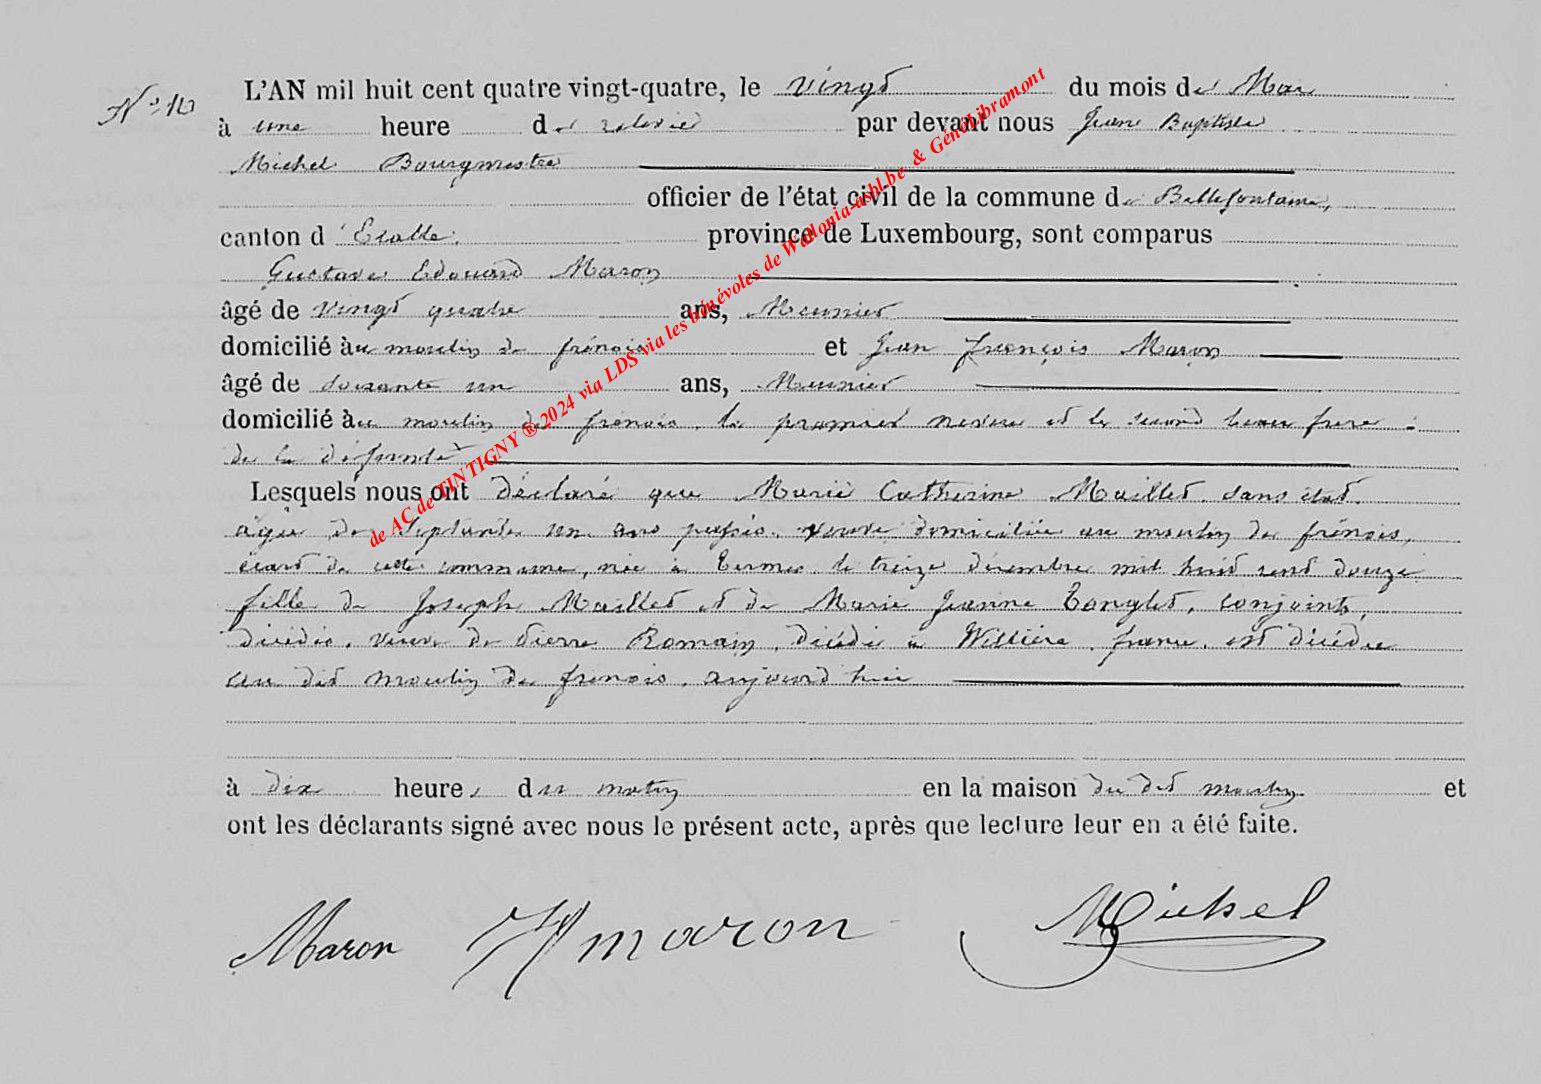 N° 10
L'AN mil huit cent quatre vingt-quatre, le vingt du mois de Mai
à une heure de relevée par devant nous Jean Baptiste
Michel Bourgmestre
officier de l'état civil de la commune de Bellefontaine,
canton d'Etalle, province de Luxembourg, sont comparus
Gustave Edouard Maron
âgé de vingt quatre ans, Meunier
domicilié au moulin de frénois et Jean françois Maron
âgé de soixante un ans, Meunier
domicilié au moulin de frénois, le premier neveu et le second beau frere
de la défunte
Lesquels nous ont déclaré que Marie Catherine Maillet sans état,
agée de septante un ans passés, veuve domiciliée au moulin de frénois,
écart de cette commune, née à Termes le treize décembre mil huit cent douze
fille de Joseph Maillet et de Marie Jeanne Tonglet, conjoints,
décédés, veuve de Pierre Romain, décédé à Willière, france, est décédée
au dit moulin de frenois, aujourd'hui
à dix heures du matin en la maison du dit moulin et
ont les déclarants signé avec nous le présent acte, après que lecture leur en a été faite.
Maron maron Michel
de AC de TINTIGNY ® 2024 via LDS via les bénévoles de Wallonia-asbl.be & GénéaLibramont